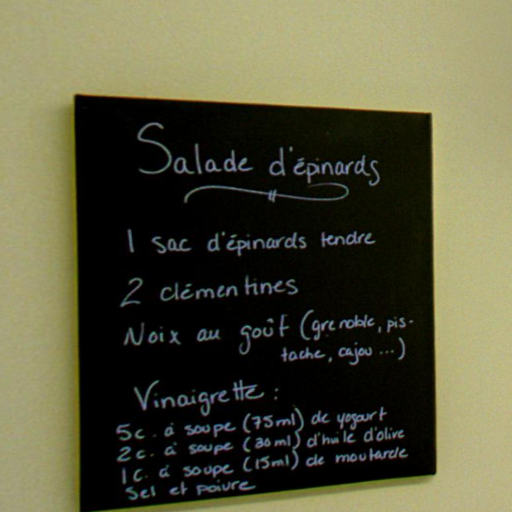 Salade d'épinards
1 sac d'épinards tendre
2 clémentines
Noix au goût (grenoble, pis-
tache, cajou ...)
Vinaigrette :
5c. à soupe (75ml) de yogourt
2c. à soupe (30ml) d'huile d'olive
1c. à soupe (15ml) de moutarde
Sel et poivre